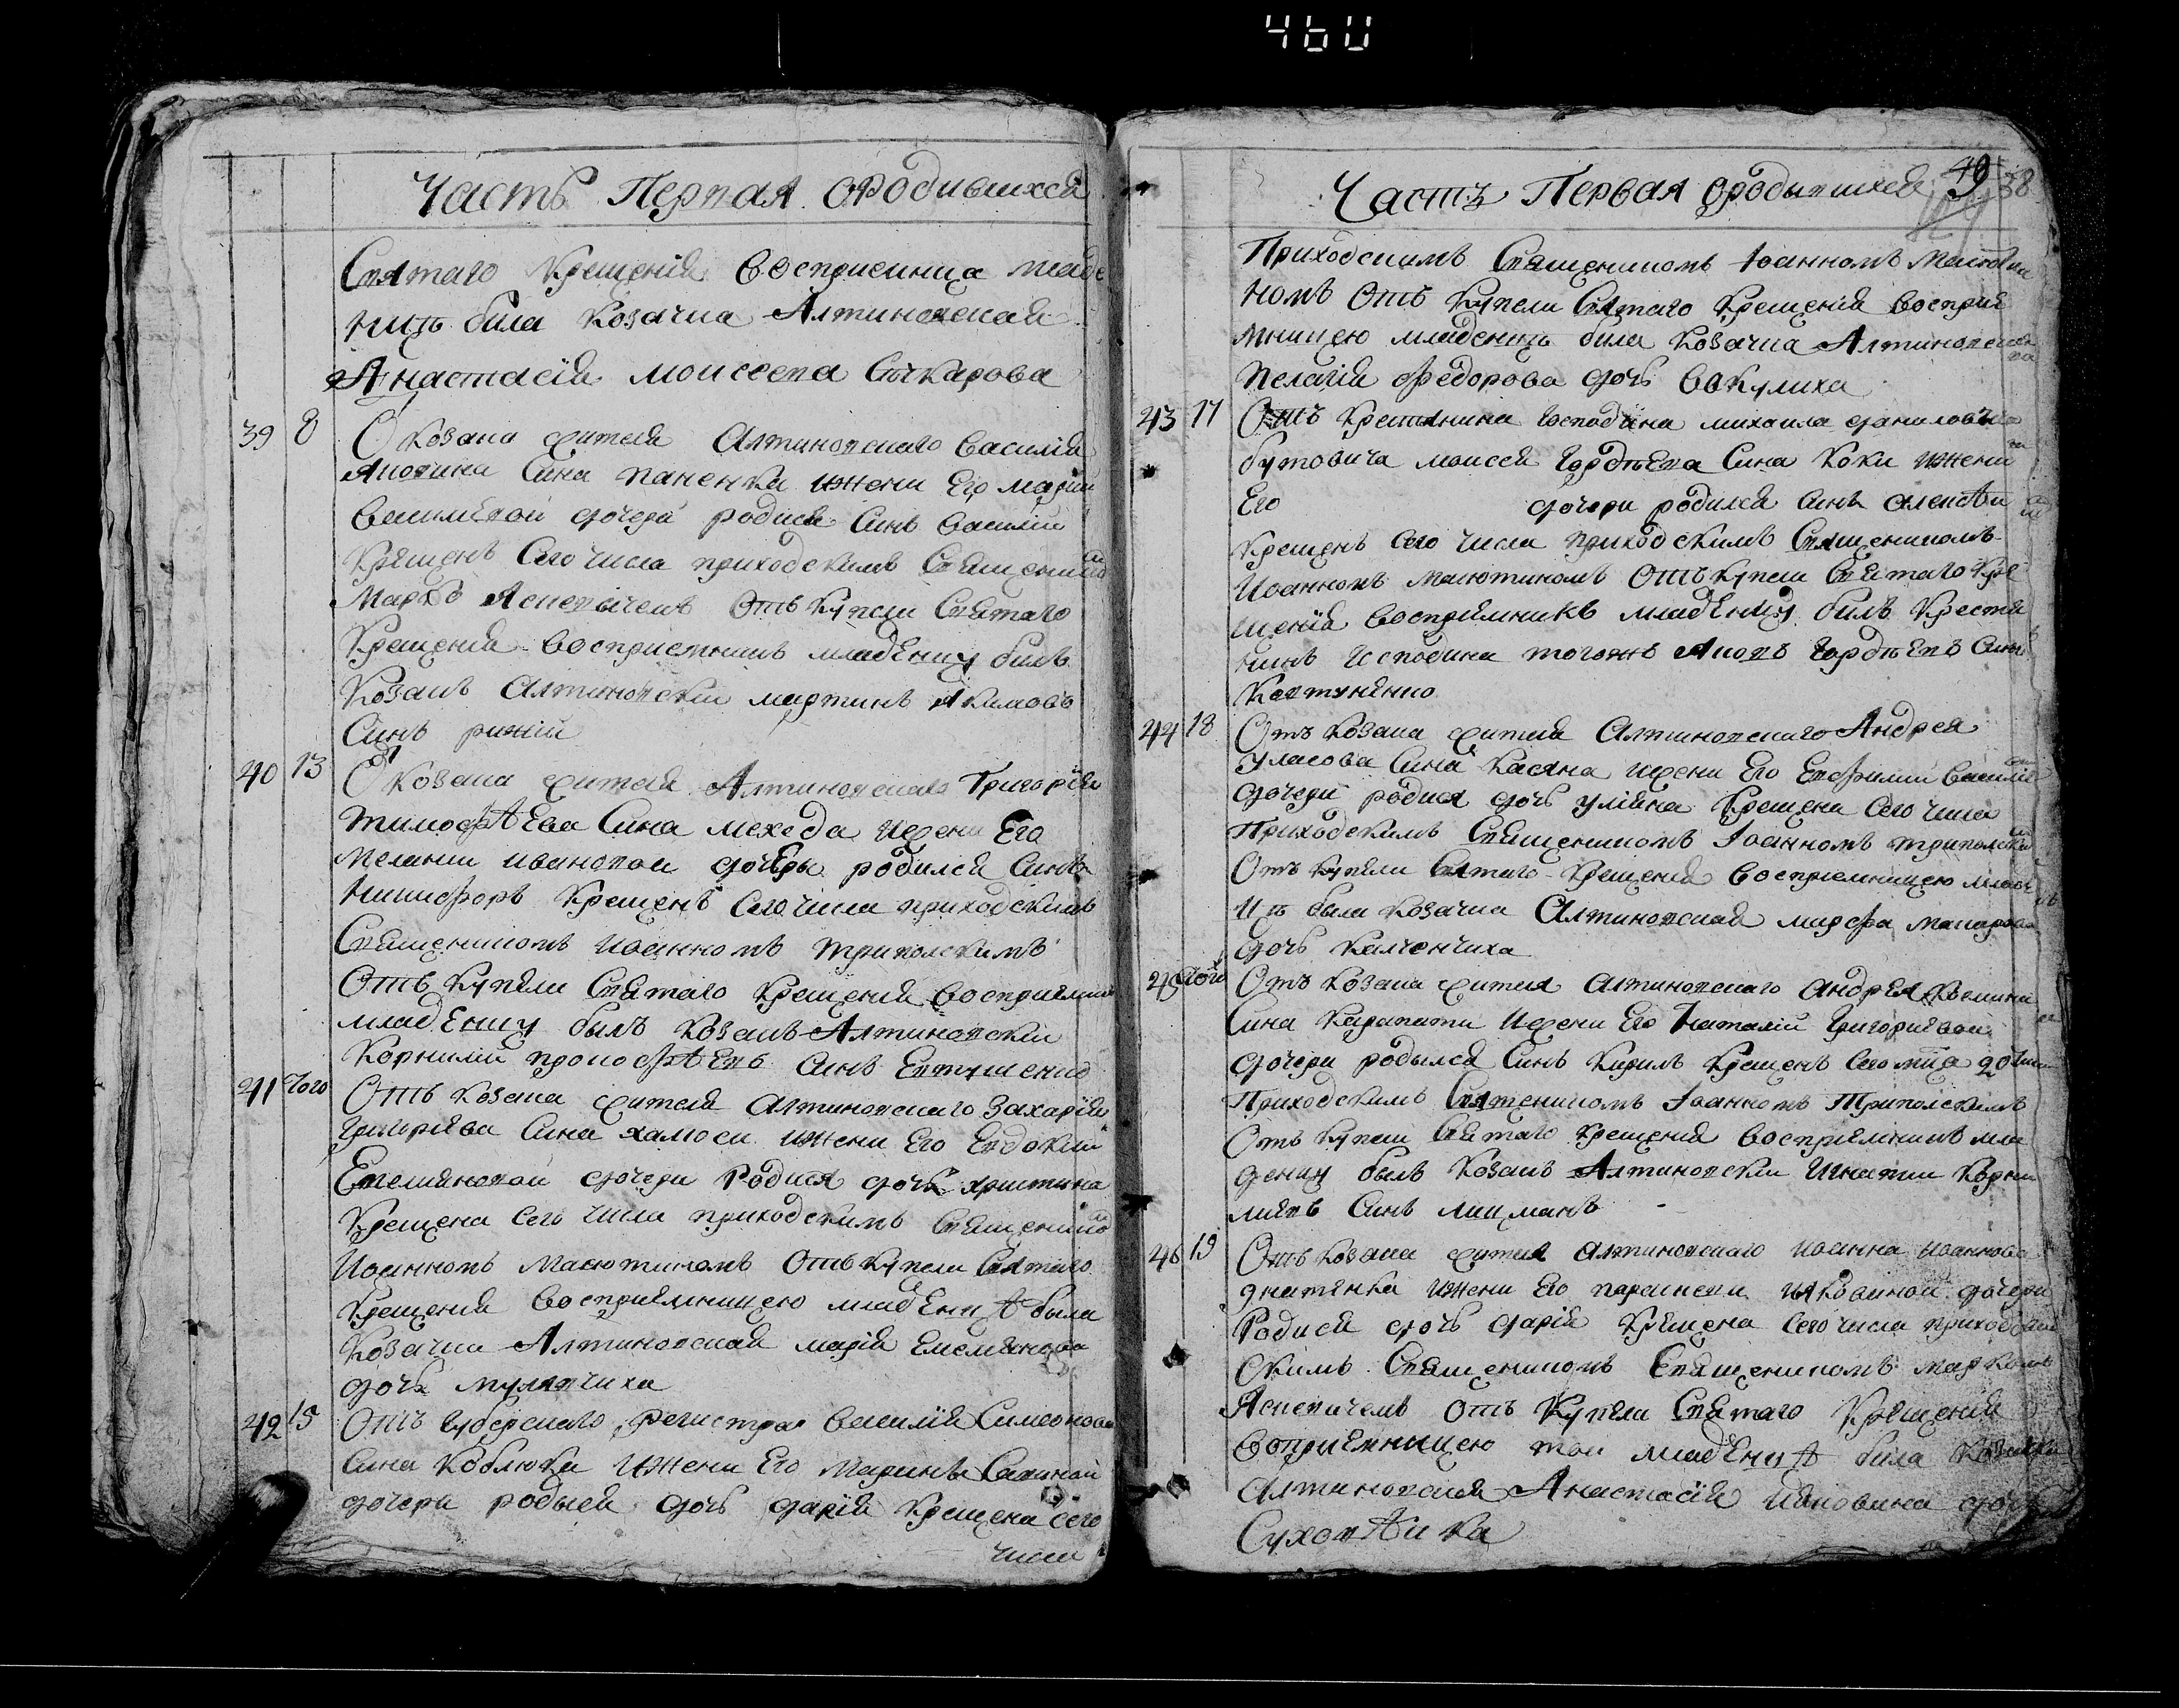 460
Часть Первая ородившихся
Святаго Крещенія восприемница младе
нцъ била козачка Алтиновская
Анастасія моисеева
39 8 О козака жителя Алтиновскаго Василія
сина паненка ижени Его маріи
дочери родися Синъ василій
Крещенъ Сего числа приходскимъ Священнико
Марко Ясневичемъ Отъ купели Святаго
Крещенія восприемникъ младЕнцу билъ
Козакъ Алтиновскій мартинъ Якимовъ
Синъ рижій
40 13 О козака жителя Алтиновскаго Григорія
тимофѣЕва Сина мехеда Ижени Его
мелании ивановой дочЕры родился Синъ
никифоръ Крещенъ Сего числа приходскимъ
Священникомъ иоанномъ триполскимъ
Отъ Купели Святаго Крещенія восприемник
младЕнцу былъ козакъ Алтиновскій
Корнилій прокофѣЕвъ Синъ Евтушенко
41 того Отъ Козака жителя Алтиновскаго Захарія
Григоріева Сина ижени Его Евдокіи
Емеляновой дочери Родися дочь христина
Крещена Сего числа приходскимъ Священнико
Иоанномъ Масютиномъ Отъ купели Святаго
Крещенія восприемницею младЕнцѣ была
козачка Алтиновская марія Емелянова
дочь
42 15 Отъ регистра василія Симеонова
Сина Коблюки Ижени Его Марины Савиной
дочери родыся дочь дарія Крещена сего
числа
Часть Первая ородывшихся 49 38
Приходскимъ Священникомъ Іоанномъ Масюти
номъ Отъ Купели Святаго Крещенія восприе
мницею младенцъ била козачка Алтиновска
пелагія федорова дочь вакулиха
43 17 Отъ Крестянина Господина михаила даниловича
бутовича моисея ГордѣЕва Сина Коки ижени
Его дочери родился Синъ алексѣй
Крещенъ Сего числа приходскимъ Священникомъ
Иоанномъ масютиномъ Отъ купели Святаго Кре
щенія восприемникъ младЕнцу билъ Крестя
нинъ Господина тогожъ ГордѣЕвъ Синъ
Ковтуненко
44 18 Отъ Козака жителя Алтиновскаго Андрея
уласова Сина Касяна ижени Его Евфимии
дочери родися дочь уліяна Крещена Сего числа
Приходскимъ Священникомъ Іоанномъ триполски
Отъ купели Святаго Крещенія восприемницею младе
нцъ была козачка Алтиновская марфа макарова
дочь
45 того Отъ козака жителя Алтиновскаго андрея
Сина Ижени Его Наталіи Григоріевой
дочери родылся Синъ Кирилъ Крещенъ Сего мца 20 числа
Приходскимъ Священникомъ Іоанномъ Триполскимъ
Отъ купели Святаго Крещенія восприемникъ мла
денцу былъ козакъ Алтиновскій Игнатій Корни
лиевъ Синъ лицманъ
46 19 Отъ козака жителя Алтиновскаго иоанна иоаннова
ижени Его параскеви Яковиной дочери
Родися дочь дарія Крещена Сего числа приходс
скимъ Священникомъ Священникомъ марком
Ясневичемъ Отъ Купели Святаго Крещенія
восприЕмницею той младЕнцѣ била козачка
Алтиновская Анастасія дочь